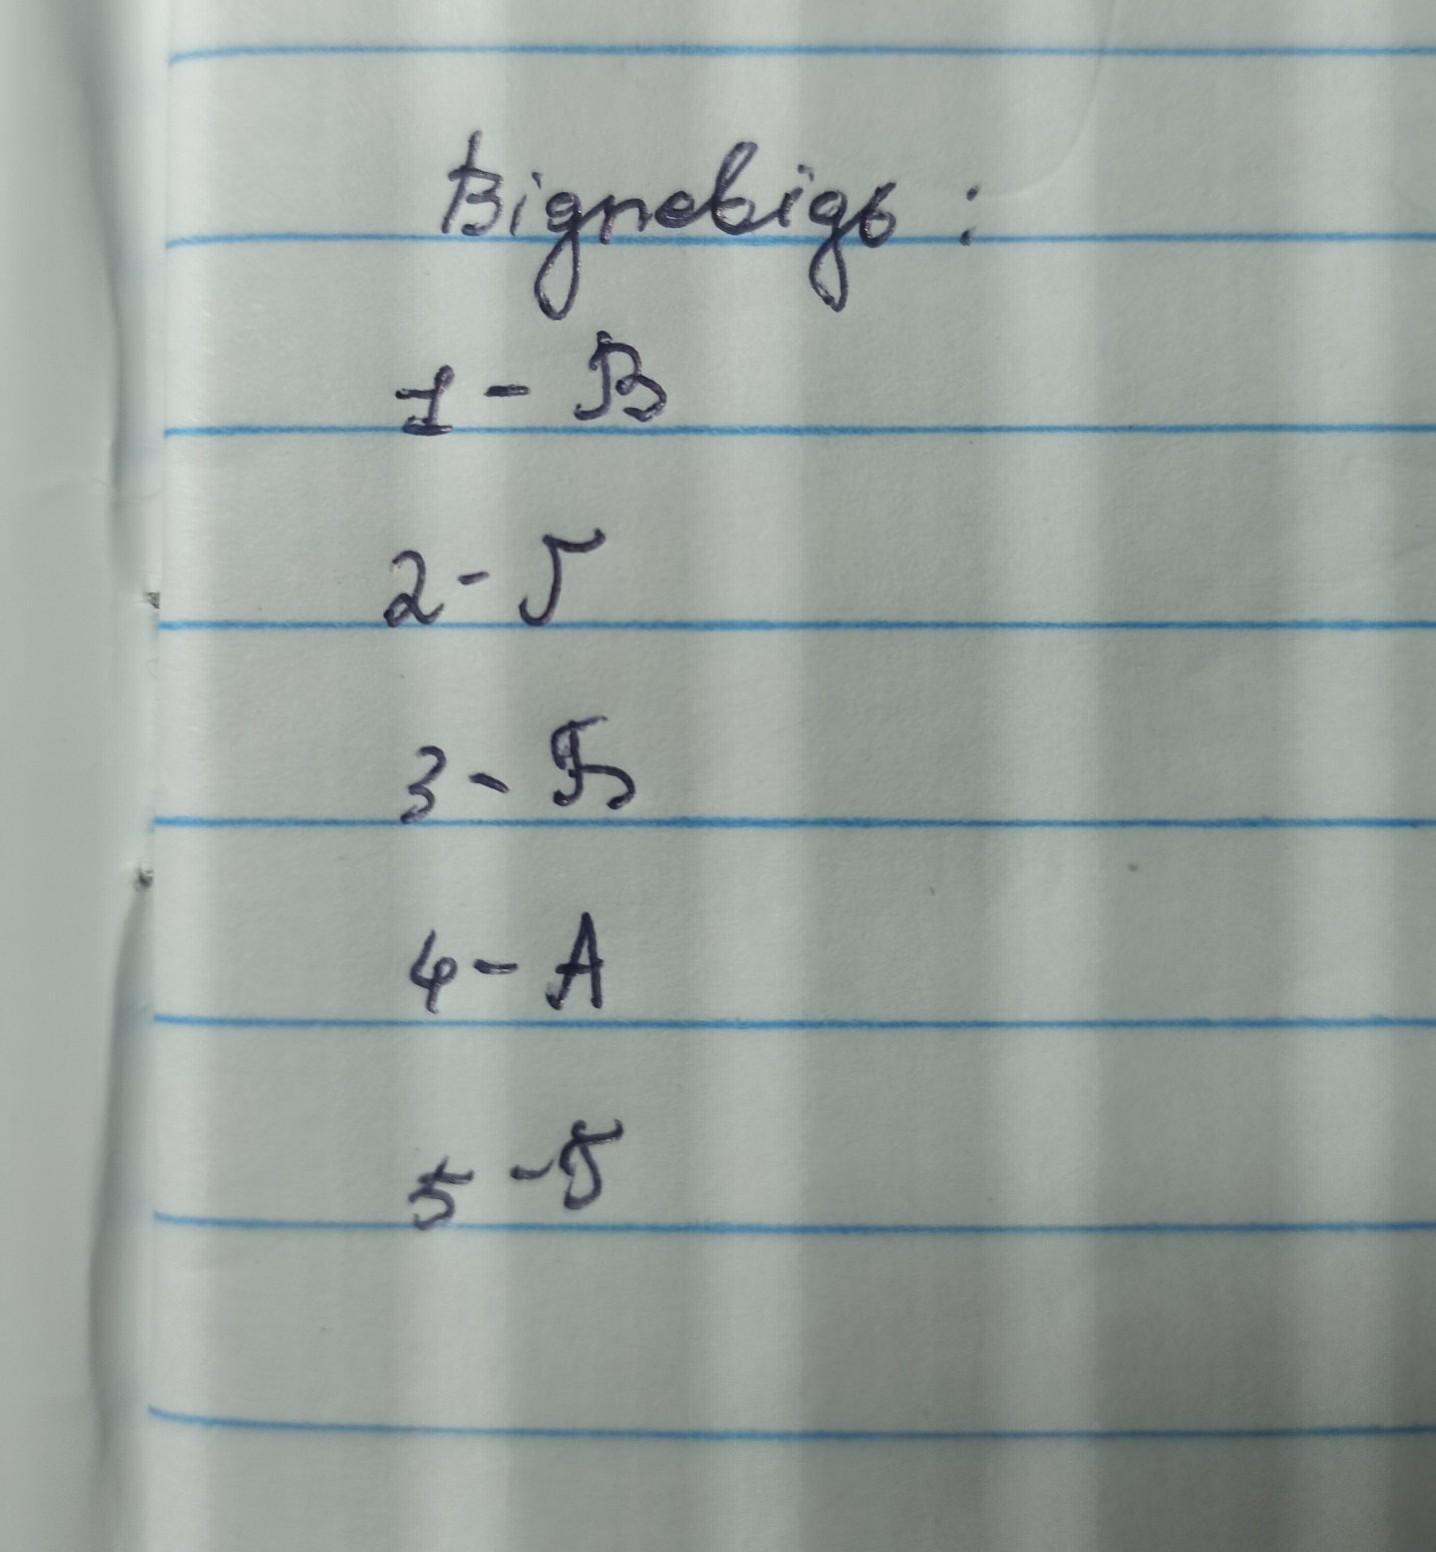 Відповідь :
1 - В
2 - Г
3 - Б
4 - А
5 - Г